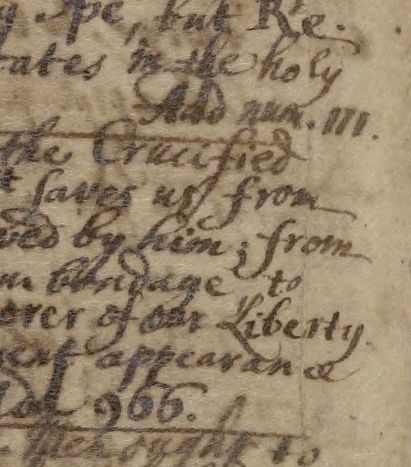 Spe, but Re.
tates in the holy
Add num. III.
the Crucified
t saves us from
ved by him; from
m bondage to
orer of our Liberty.
sent appearance
966.
ought to